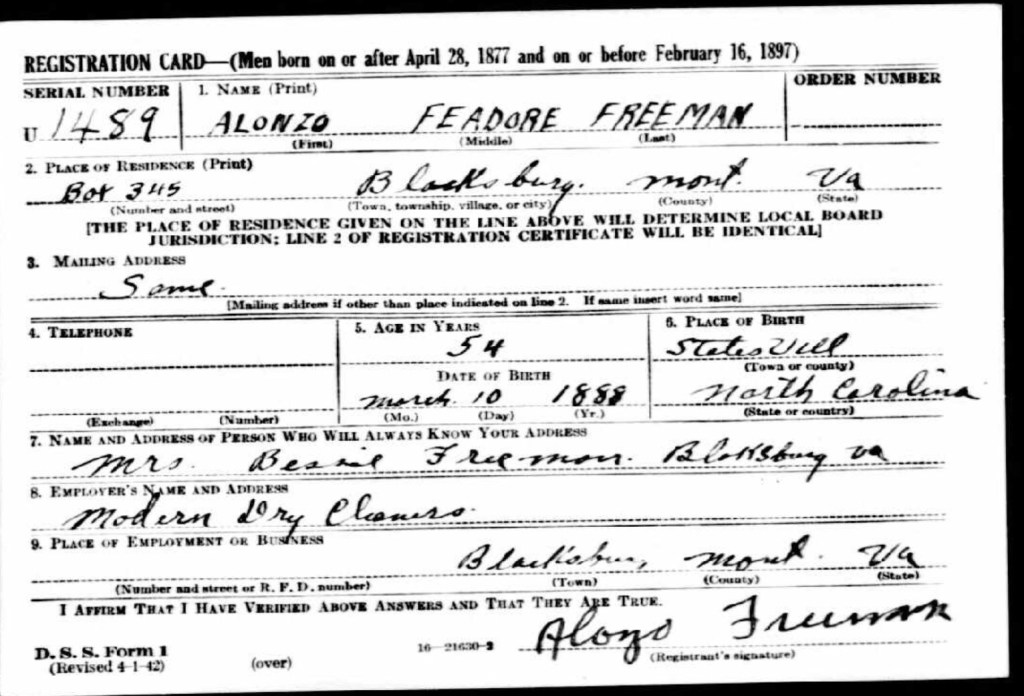 REGISTRATION CARD—(Men born on or after April 28, 1877 and on or before February 16, 1897)
SERIAL NUMBER 1. NAME (Print) ORDER NUMBER
U 1489 ALONZO FEADORE FREEMAN
(First) (Middle) (Last)
2. PLACE OF RESIDENCE (Print)
Box 345 Blacksburg. Mont. Va
(Number and street) (Town, township, village, or city) (County) (State)
[THE PLACE OF RESIDENCE GIVEN ON THE LINE ABOVE WILL DETERMINE LOCAL BOARD
JURISDICTION; LINE 2 OF REGISTRATION CERTIFICATE WILL BE IDENTICAL]
3. MAILING ADDRESS
Same
[Mailing address if other than place indicated on line 2. If same insert word same]
4. TELEPHONE 5. AGE IN YEARS 6. PLACE OF BIRTH
54 StatesVill
(Town or county)
DATE OF BIRTH
March 10 1888 North Carolina
(Exchange) (Number) (Mo.) (Day) (Yr.) (State or country)
7. NAME AND ADDRESS OF PERSON WHO WILL ALWAYS KNOW YOUR ADDRESS
Mrs. Bessie Freeman. Blaksburg va
8. EMPLOYER'S NAME AND ADDRESS
Modern Dry Cleaners
9. PLACE OF EMPLOYMENT OR BUSINESS
Blacksburg, Mont. Va
(Number and street or R. F. D. number) (Town) (County) (State)
I AFFIRM THAT I HAVE VERIFIED ABOVE ANSWERS AND THAT THEY ARE TRUE.
Alozo Freeman
D. S. S. Form 1 16—21630-2 (Registrant's signature)
(Revised 4-1-42) (over)